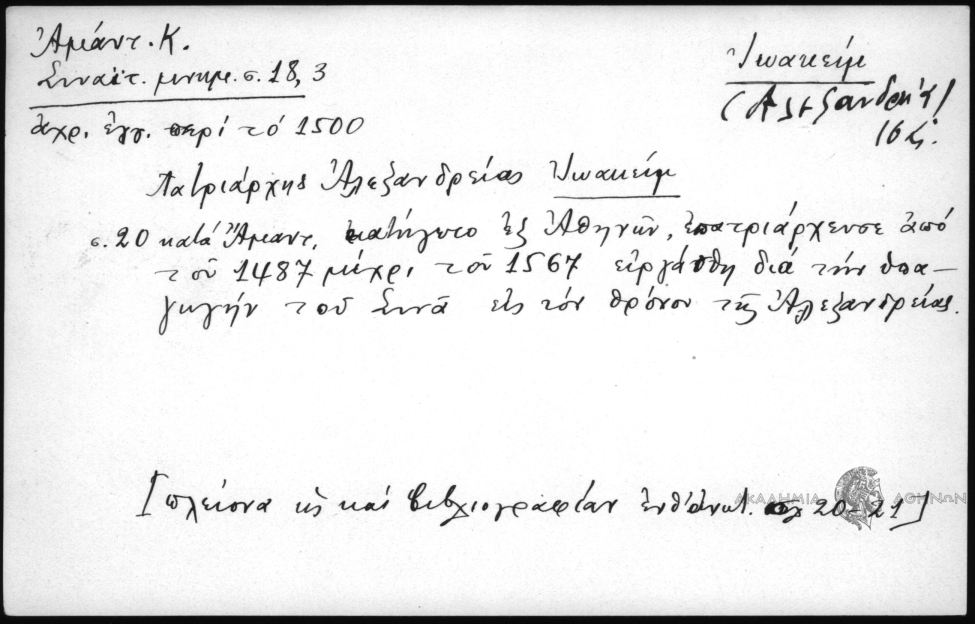 Ἀμάντ. Κ.
Σιναϊτ. μνημ. σ. 18, 3
ἀχρ. ἔγγ. περί τό 1500
Ἰωακείμ
(Ἀλεξανδρ.)
16
Πατριάρχης Ἀλεξανδρείας Ἰωακείμ
σ. 20 κατά Ἄμαντ. κατήγετο ἐξ Ἀθηνῶν, ἐπατριάρχευσε ἀπό
τοῦ 1487 μέχρι τοῦ 1567 εἰργάσθη διά τήν ὑπα-
γωγήν τοῦ Σινᾶ εἰς τόν θρόνον τῆς Ἀλεξανδρείας.
[πλείονα ὡς καί βιβλιογραφίαν ἔνθ' ἀνωτ. σ. 20-21]
ΑΚΑΔΗΜΙΑ ΑΘΗΝΩΝ